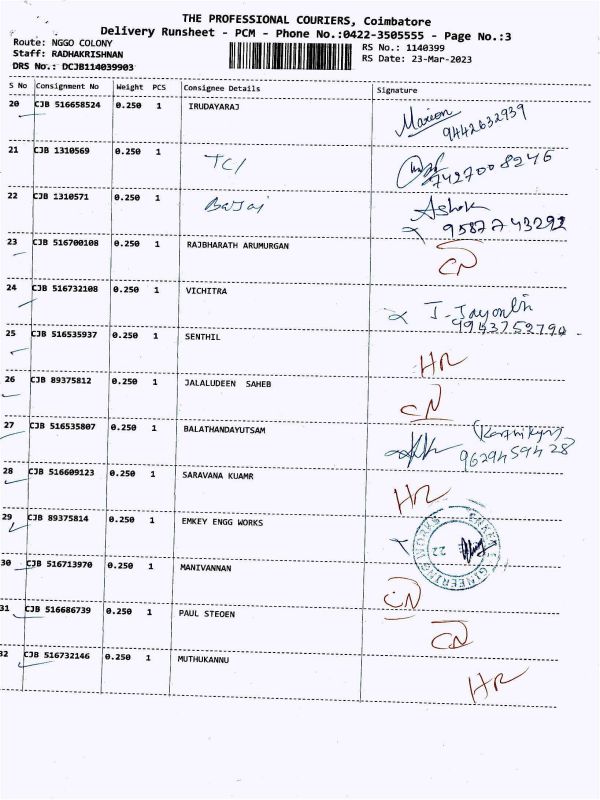 THE PROFESSIONAL COURIERS, Coimbatore
Delivery Runsheet - PCM - Phone No.:0422-3505555 - Page No.:3
Route: NGGO COLONY
Staff: RADHAKRISHNAN
DRS No.: DCJB114039903
RS No.: 1140399
RS Date: 23-Mar-2023
S No Consignment No Weight PCS Consignee Details Signature
20 CJB 516658524 0.250 1 IRUDAYARAJ
9442632939
21 CJB 1310569 0.250 1 TCI
7427008246
22 CJB 1310571 0.250 1 Bajaj Ashok
9587743292
23 CJB 516700108 0.250 1 RAJBHARATH ARUMURGAN CN
24 CJB 516732108 0.250 1 VICHITRA
9943752790
25 CJB 516535937 0.250 1 SENTHIL HR
26 CJB 89375812 0.250 1 JALALUDEEN SAHEB CN
27 CJB 516535807 0.250 1 BALATHANDAYUTSAM
9629459428
28 CJB 516609123 0.250 1 SARAVANA KUAMR HR
29 CJB 89375814 0.250 1 EMKEY ENGG WORKS
22
30 CJB 516713970 0.250 1 MANIVANNAN CN
31 CJB 516686739 0.250 1 PAUL STEOEN CN
32 CJB 516732146 0.250 1 MUTHUKANNU HR